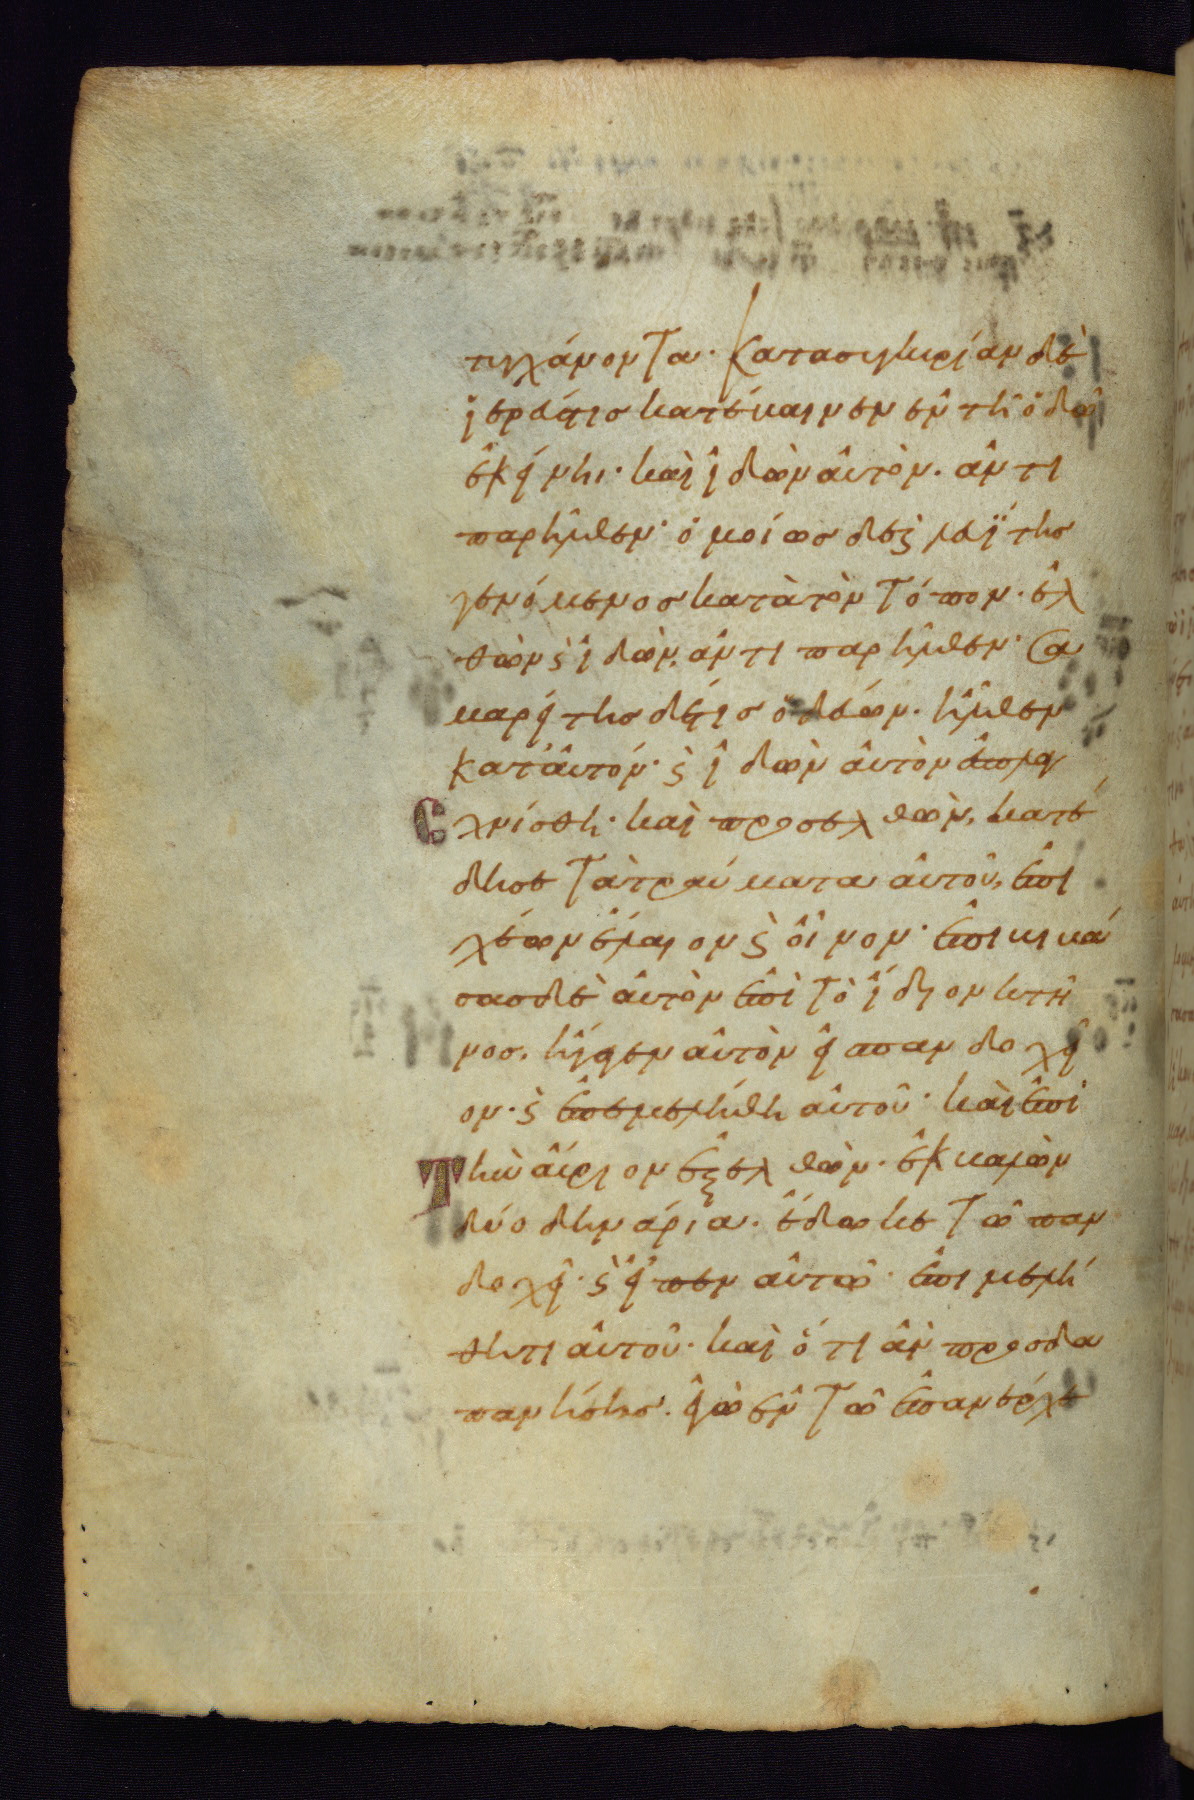 τυγχάνοντα· κατασυγκυρίαν δὲ
ἱερεύς τις κατέβαινεν ἐν τῆ ὁδῶ
ἐκείνη· καὶ ἰδὼν αὐτὸν· ἀντι
παρῆλθεν· ὁμοίως δὲ ϗ λευΐτης
γενόμενος κατὰ τὸν τόπον· ἐλ
θὼν ϗ ἰδὼν, ἀντιπαρῆλθεν· Σα
μαρείτης δέ τις ὁδεύων· ἦλθεν
κατ' αὐτόν· ϗ ἰδὼν αὐτὸν ἐσπλα
Γχνίσθη· καὶ προσελθὼν, κατέ
δησε τὰ τραύματα αὐτοῦ, ἐπι
χέων ἔλαιον ϗ οἶνον· ἐπιβιβά
σας δὲ αὐτὸν ἐπὶ τὸ ἴδιον κτῆ
νος, ἤγαγεν αὐτὸν εἰς πανδοχεῖ
ον· ϗ ἐπεμελήθη αὐτοῦ· καὶ ἐπὶ
Τὴν αὔριον ἐξελθὼν· ἐκβαλὼν
δύο δηνάρια· ἔδωκε τῶ παν
δοχεῖ· ϗ εἶπεν αὐτῶ· ἐπιμελή
θητι αὐτοῦ· καὶ ὅτι ἂν προσδα
πανήσης· ἐγὼ ἐν τῶ ἐπανέρχε